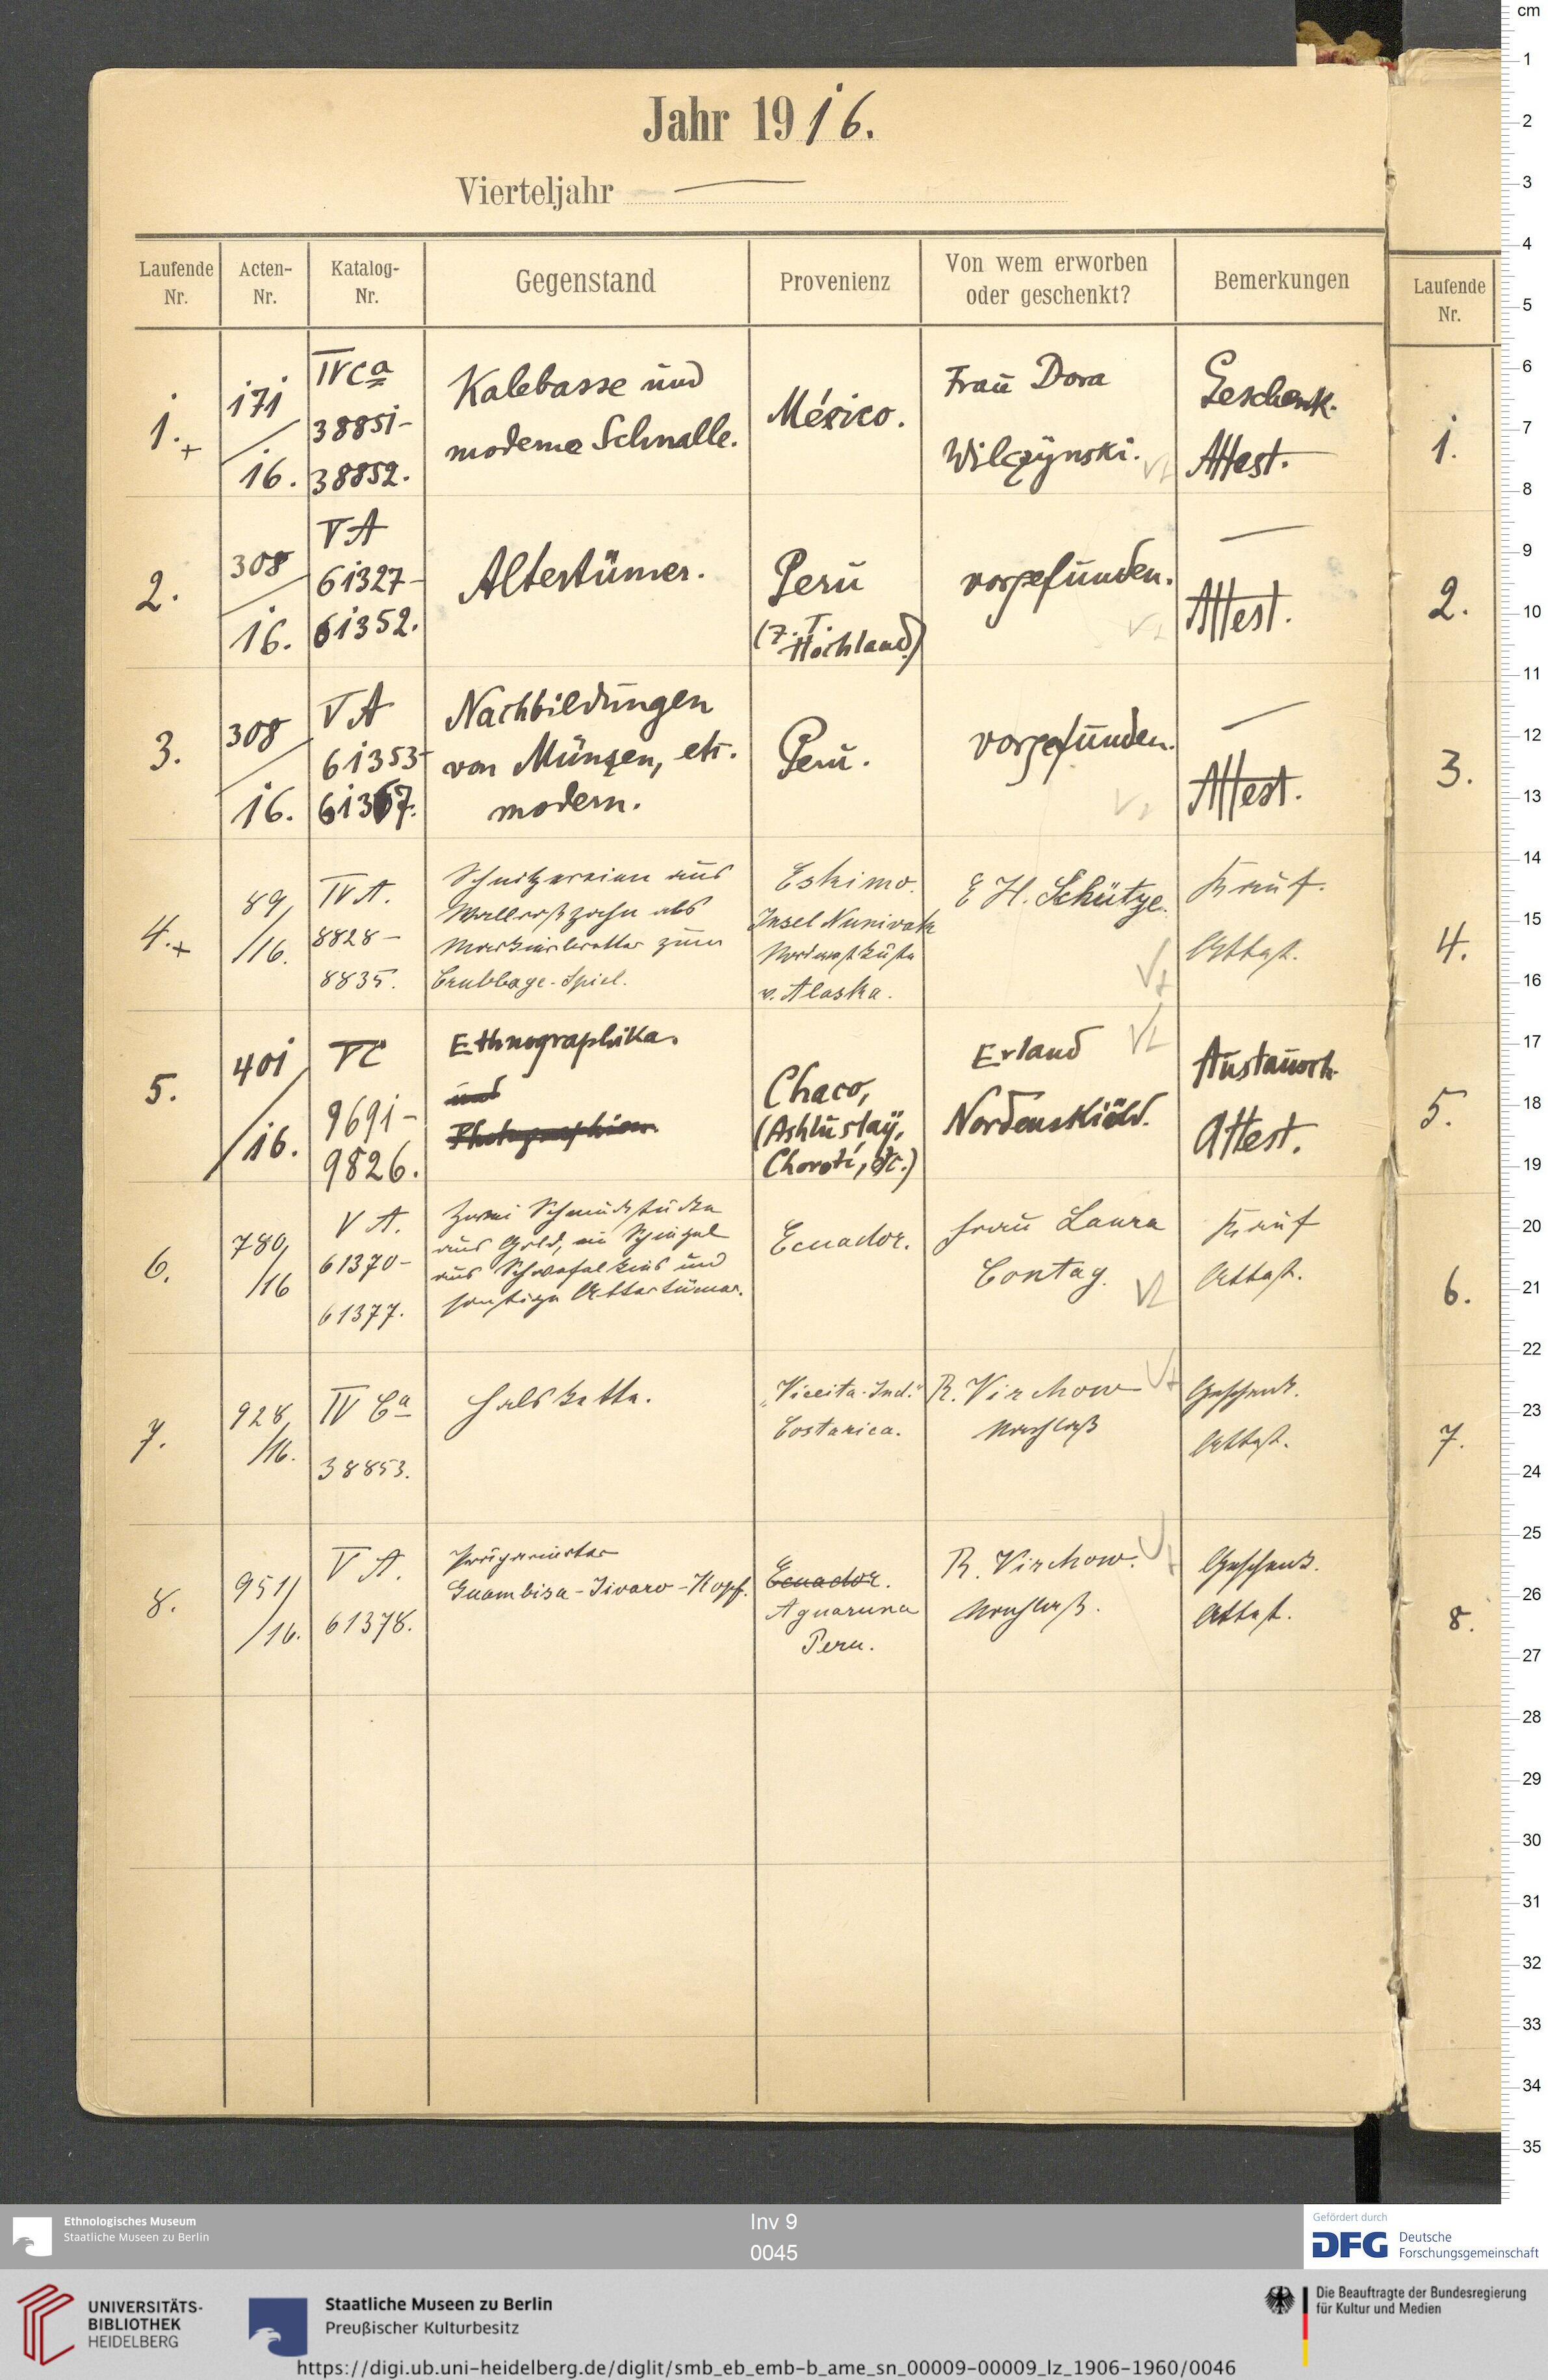 Jahr 1916.
Vierteljahr —
Laufende Nr.
Acten-Nr.
Katalog-Nr.
Gegenstand
Provenienz
Von wem erworben oder geschenkt?
Bemerkungen
Laufende Nr.
1.+
171/16.
IV Ca
38851-
38852.
Kalebasse und
moderne Schnalle.
México.
Frau Dora
Wilczynski.
Geschenk.
Attest.
1.
2.
308/16.
VA
61327-
61352.
Altertümer.
Peru
(z. T.
Hochland)
vorgefunden.
—
Attest.
2.
3.
308/16.
VA
61353-
61367.
Nachbildungen
von Münzen, etc.
modern.
Peru.
vorgefunden.
—
Attest.
3.
4.+
89/16.
IV A.
8828-
8835.
Schnitzereien aus
Wallroßzahn als
Markierbretter zum
Crubbage-Spiel.
Eskimo.
Insel Nunivak
Nordwestküste
v. Alaska.
E H. Schütze.
Kauf.
Attest.
4.
5.
401/16.
VC
9691-
9826.
Ethnographika.
und
Photographien.
Chaco,
(Ashluslay,
Choroti, etc.)
Erland
Nordenskiöld.
Austausch.
Attest.
5.
6.
780/16
V A.
61370-
61377.
Zwei Schmuckstücke
aus Gold, ein Spiegel
aus Schwefelkies und
sonstige Altertümer.
Ecuador.
Frau Laura
Contag.
Kauf
Attest.
6.
7.
928/16.
IV Ca
38853.
Halskette.
„Viceita-Ind."
Costarica.
R. Virchow
Nachlaß
Geschenk.
Attest.
7.
8.
951/16.
V A.
61378.
Guambisa-Jivaro-Kopf.
Ecuador.
Aguaruna
Peru.
R. Virchow.
Nachlaß.
Geschenk.
Attest.
8.
cm
1
2
3
4
5
6
7
8
9
10
11
12
13
14
15
16
17
18
19
20
21
22
23
24
25
26
27
28
29
30
31
32
33
34
35
Ethnologisches Museum
Staatliche Museen zu Berlin
Inv 9
0045
Gefördert durch
DFG Deutsche
Forschungsgemeinschaft
UNIVERSITÄTS-
BIBLIOTHEK
HEIDELBERG
Staatliche Museen zu Berlin
Preußischer Kulturbesitz
Die Beauftragte der Bundesregierung
für Kultur und Medien
https://digi.ub.uni-heidelberg.de/diglit/smb_eb_emb-b_ame_sn_00009-00009_lz_1906-1960/0046